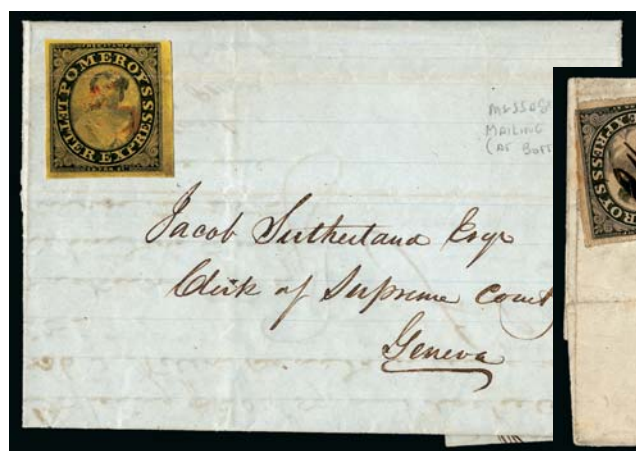 POMEROY'S
LETTER EXPRESS
MESSAGE
MAILING
(AT BOTT
Jacob Sutherland Esqr
Clerk of Supreme Court
Geneva
EXPRESS
ROY'S